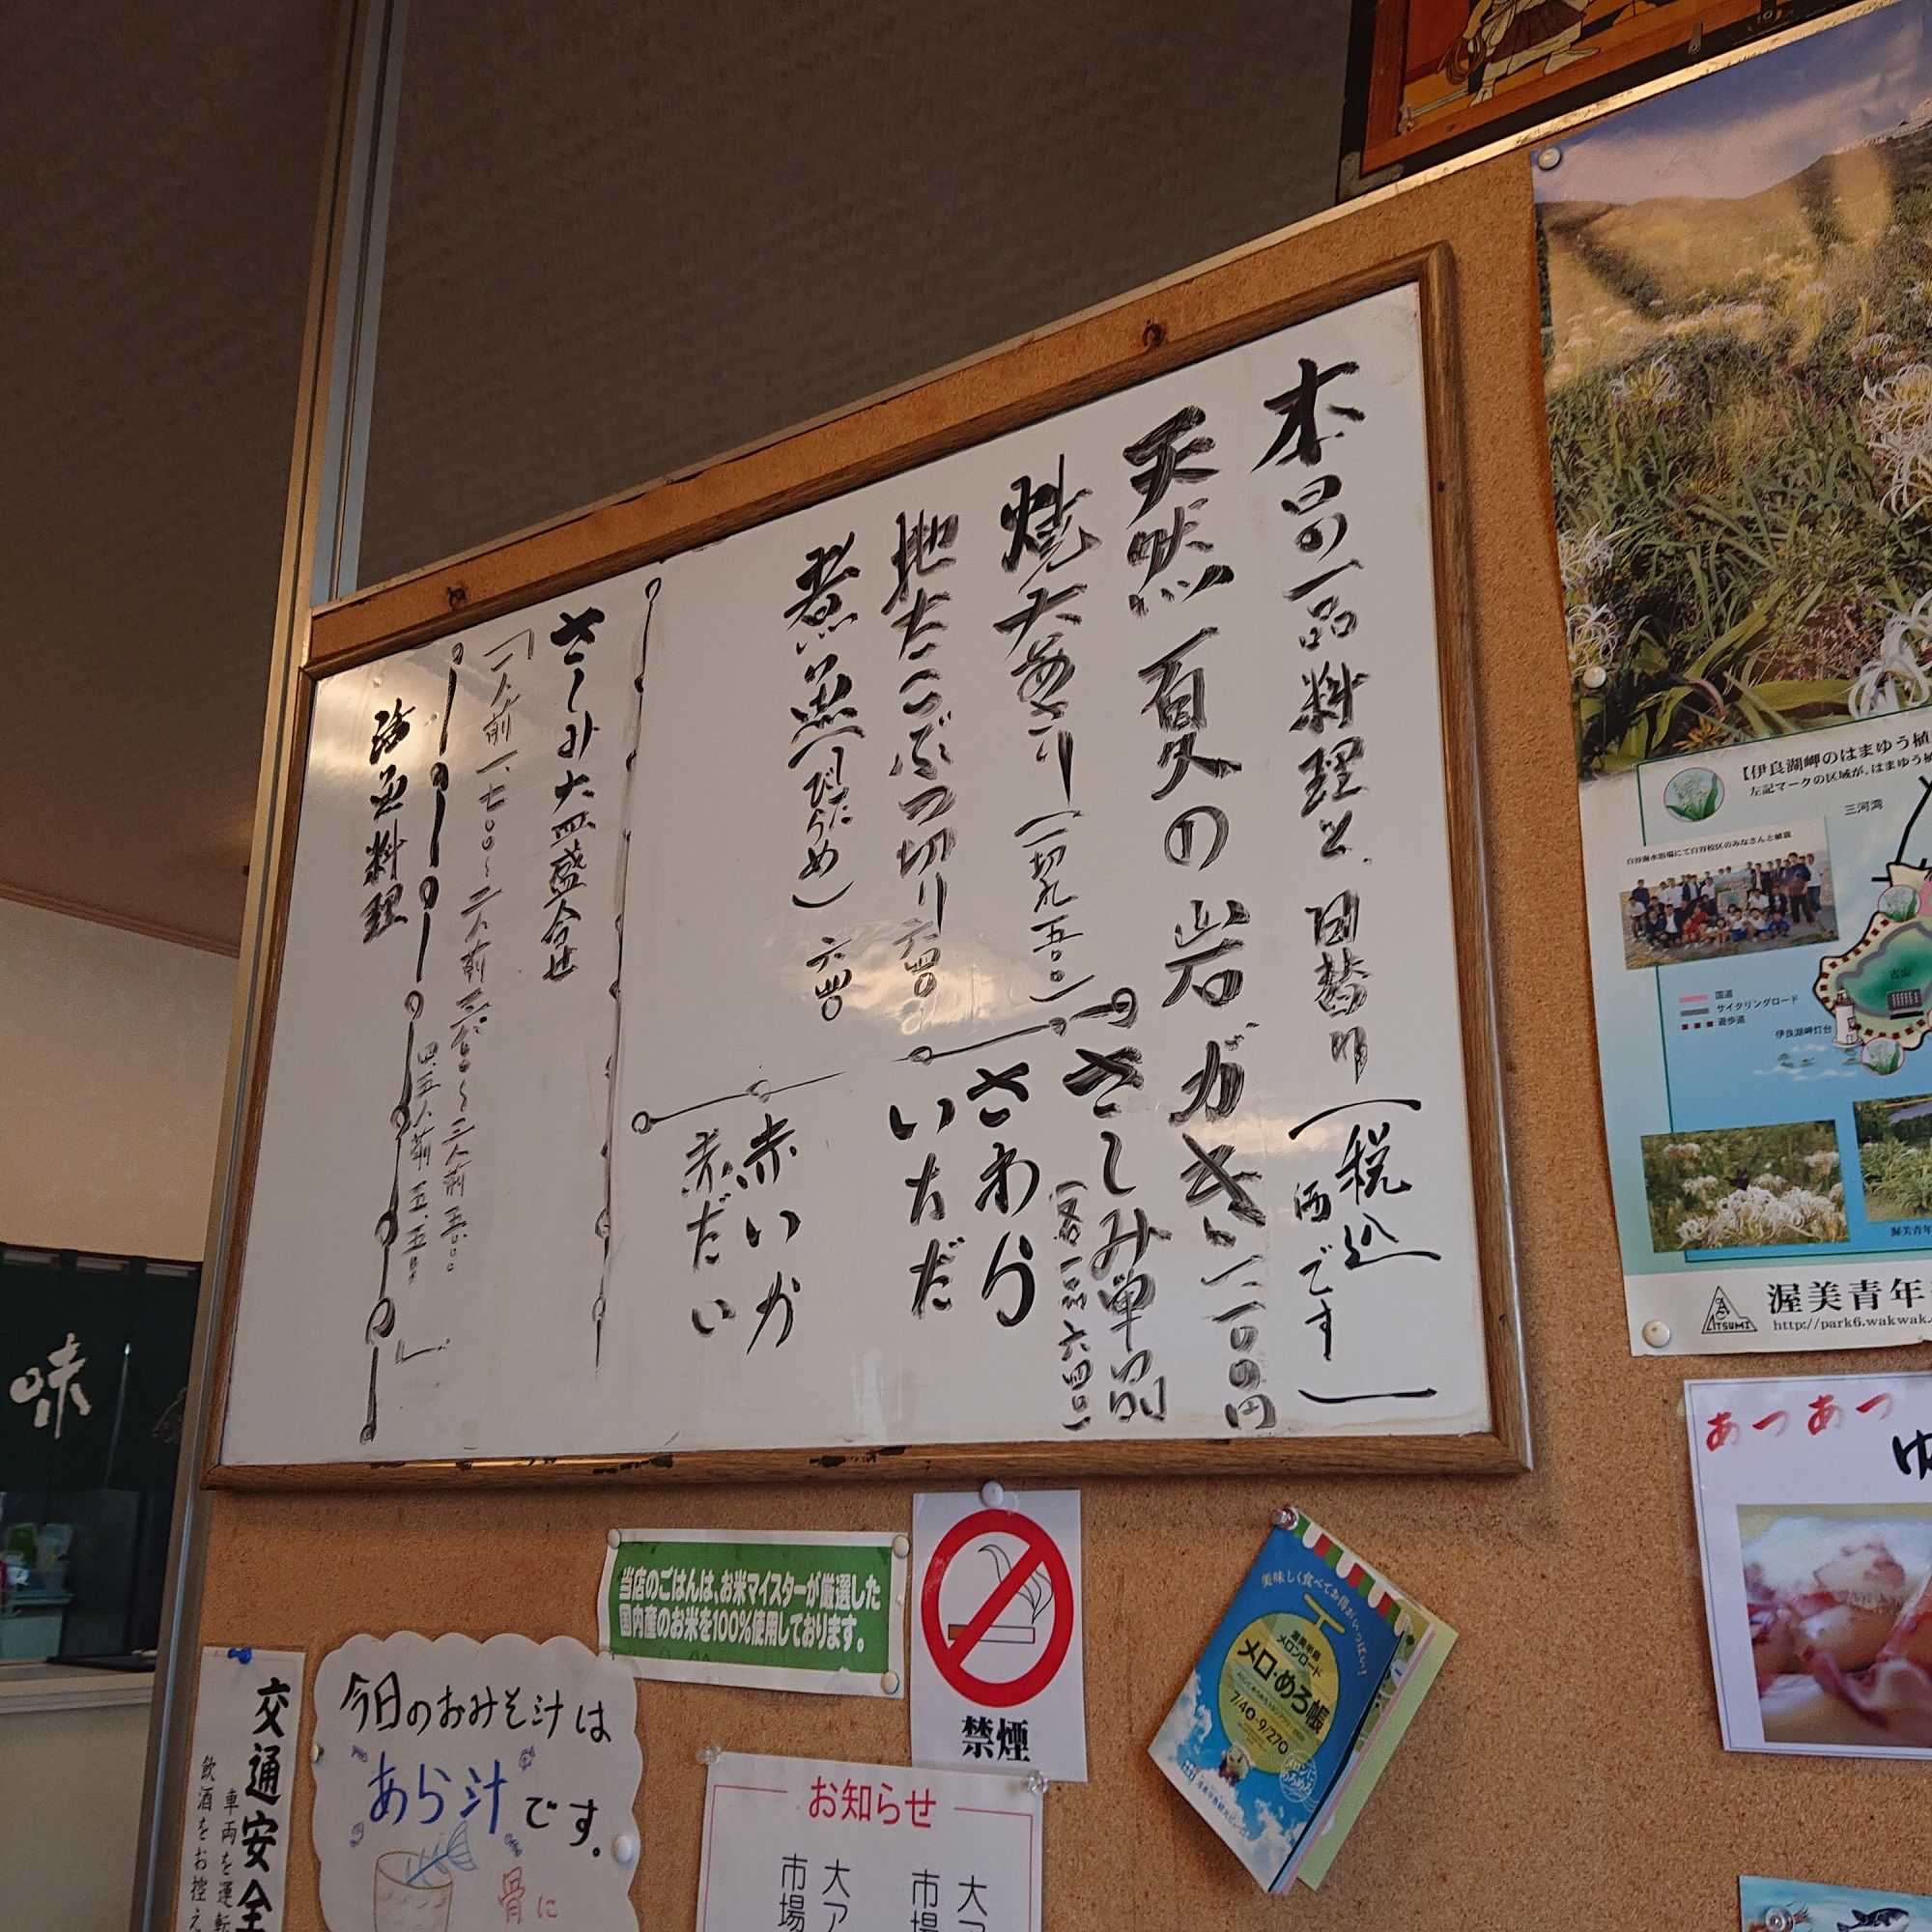 本日の一品料理と、日替り(税込
価です)
天然 百久の岩ガキ 一、一〇〇円
焼大あさり(一切れ五〇〇)
地たこぶつ切り 六四〇
煮魚(びらめ) 六四〇
さしみ単品
(各一品六四〇)
さわら
いただ
赤いか
赤だい
さしみ大皿盛合せ
「一人前一、七〇〇〜二人前
三人前
四、五人前 五、五〇〇」
活魚料理
味
【伊良湖岬のはまゆう植
左記マークの区域が、はまゆう植
三河湾
白谷海水浴場にて白谷校区のみなさんと植栽
古山
国道
サイクリングロード
遊歩道
伊良湖岬灯台
渥美青年
ATSUMI
渥美青年
http://park6.wakwak.
あつあつ
当店のごはんは、お米マイスターが厳選した
国内産のお米を100%使用しております。
禁煙
美味しく食べてお得がいっぱい!
渥美半島
メロンロード
メロ・めろ帳
7/4 9/27
交通安全
車両を運転
飲酒をお控え
今日のおみそ汁は
あら汁です。
骨に
お知らせ
大ア
市場
大ア
市場